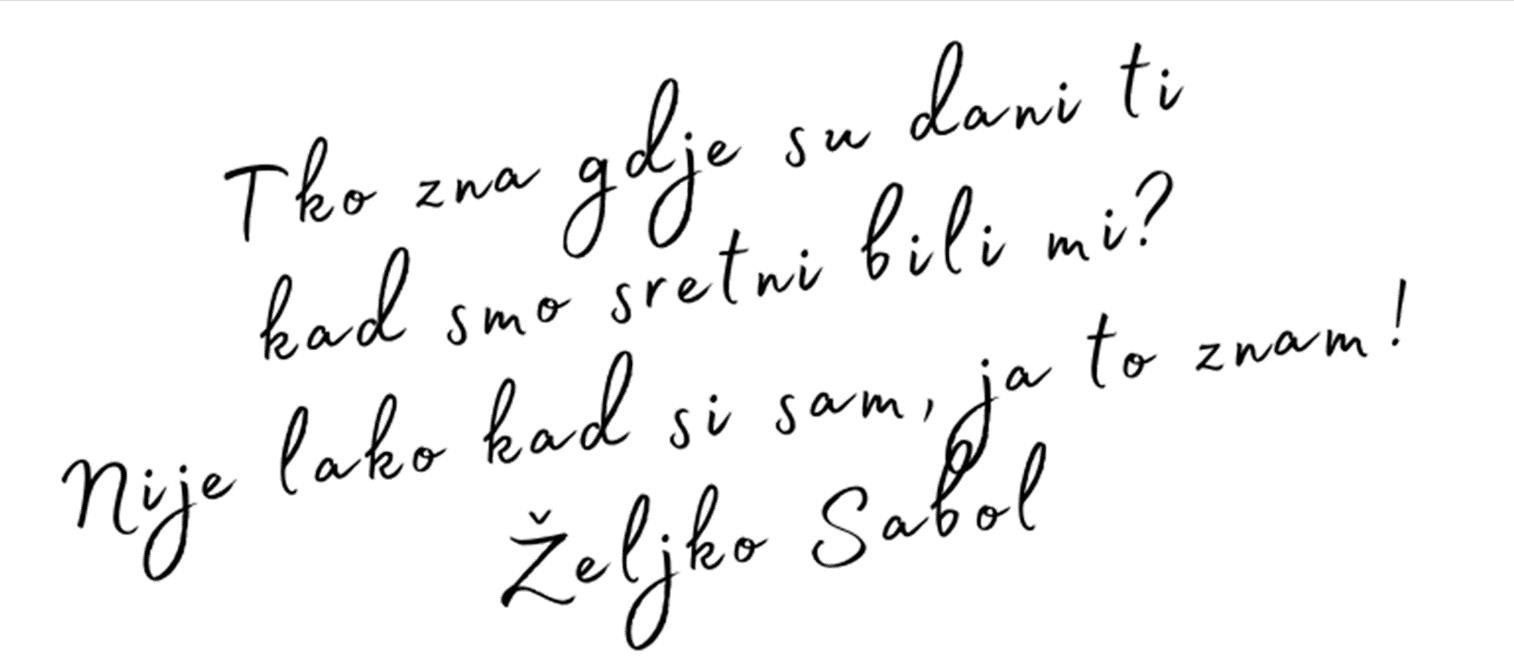 Tko zna gdje su dani ti
kad smo sretni bili mi?
Nije lako kad si sam, ja to znam!
Željko Sabol